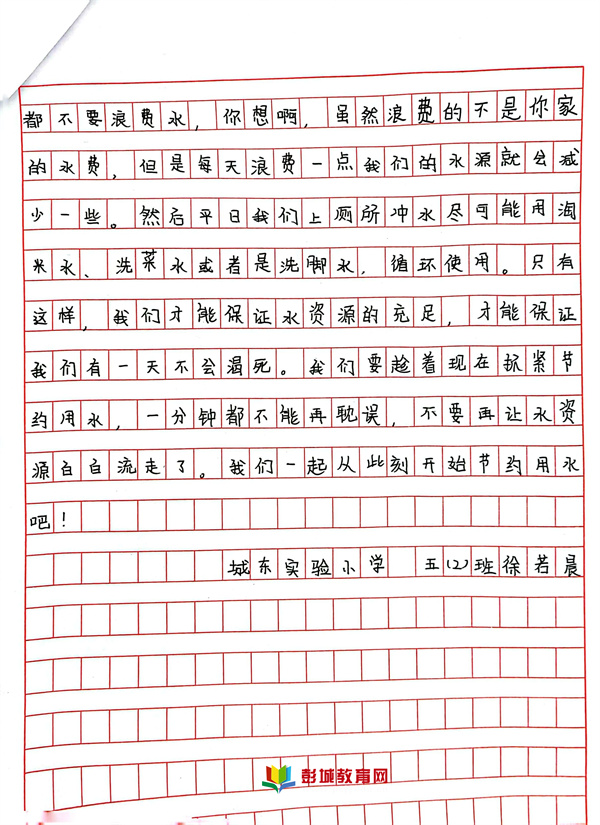 都不要浪费水，你想啊，虽然浪费的不是你家
的水费，但是每天浪费一点我们的水源就会减
少一些。然后平日我们上厕所冲水尽可能用淘
米水、洗菜水或者是洗脚水，循环使用。只有
这样，我们才能保证水资源的充足，才能保证
我们有一天不会渴死。我们要趁着现在抓紧节
约用水，一分钟都不能再耽误，不要再让水资
源白白流走了。我们一起从此刻开始节约用水
吧！
城东实验小学 五(2)班徐若晨
彭城教育网